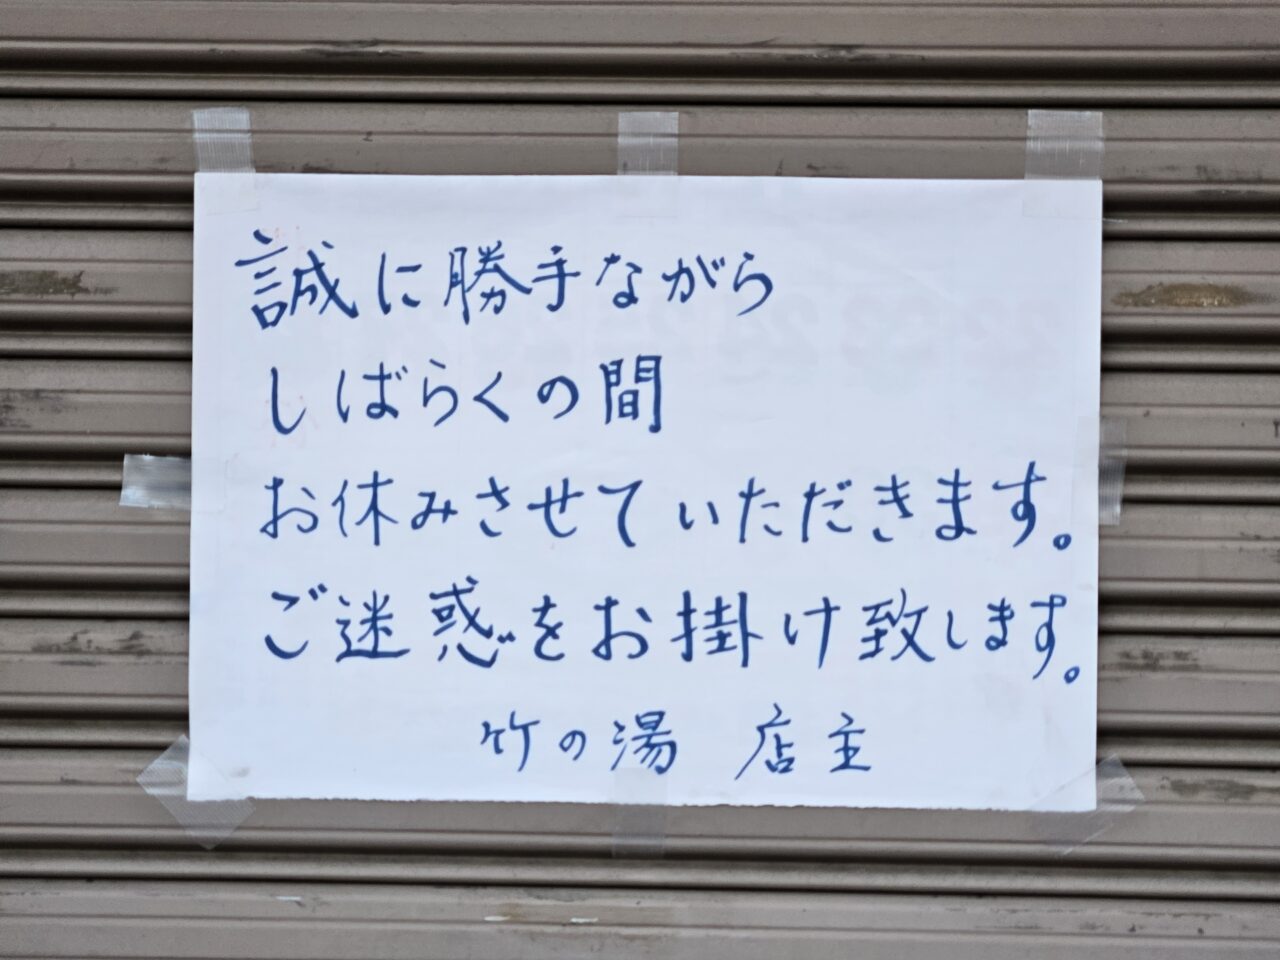 誠に勝手ながら
しばらくの間
お休みさせていただきます。
ご迷惑をお掛け致します。
竹の湯 店主